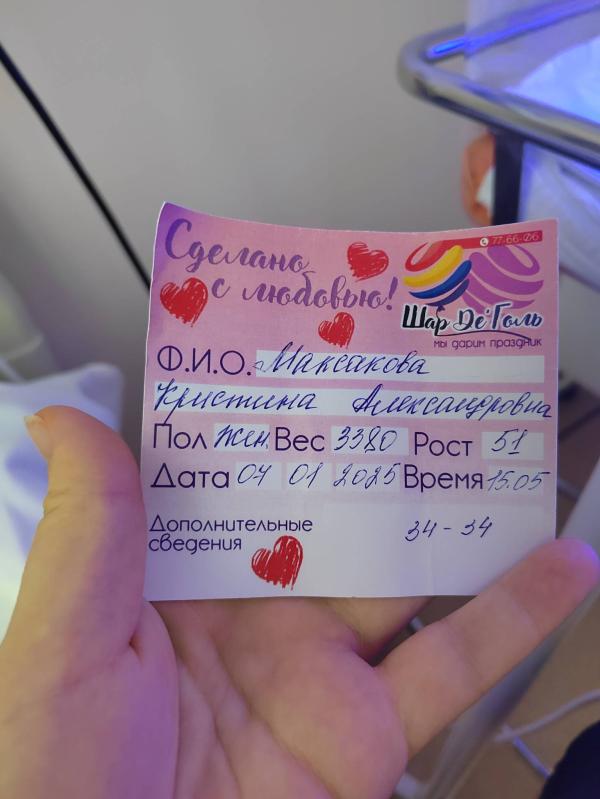 77-66-06
Сделано
с любовью!
Шар Де'Голь
мы дарим праздник
Ф.И.О. Максакова
Кристина Александровна
Пол Жен Вес 3380 Рост 51
Дата 04 01 2025 Время 15.05
Дополнительные
сведения
34-34